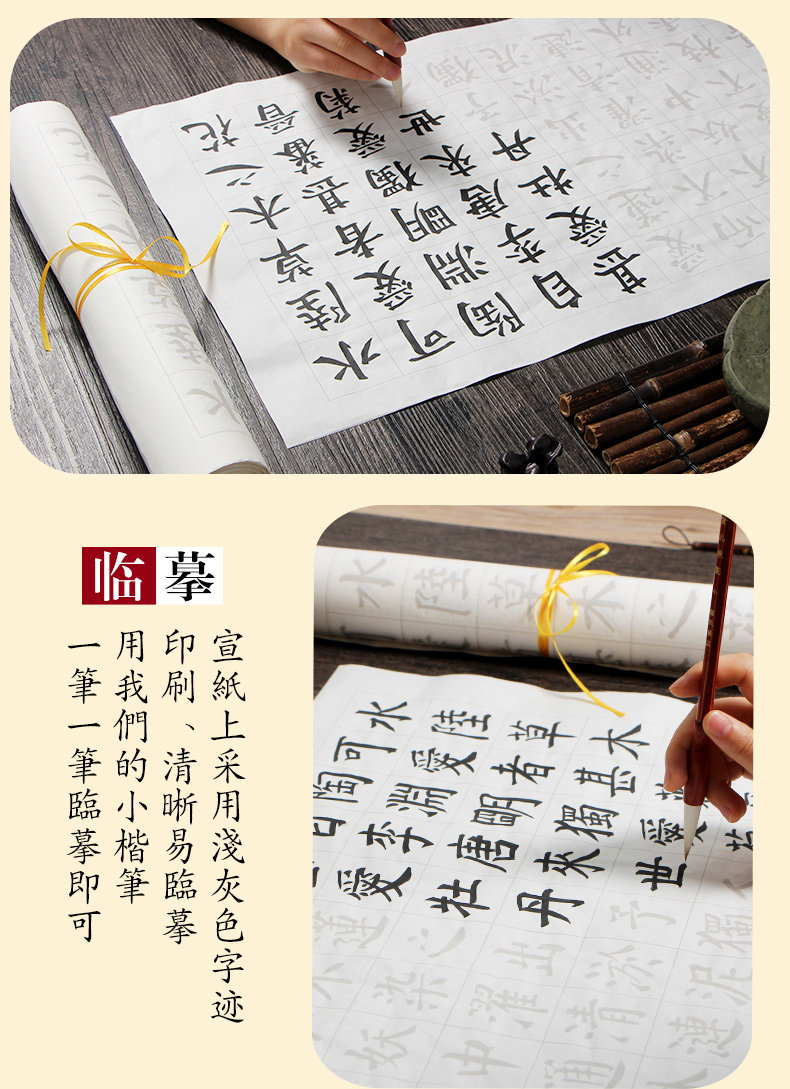 水陸草木之花
可愛者甚蕃晉
陶淵明獨愛菊
自李唐來世
甚愛牡丹
临摹
宣紙上采用淺灰色字迹
印刷、清晰易臨摹
用我們的小楷筆
一筆一筆臨摹即可
水陸草木之
水陸草木
可愛者甚
陶淵明獨愛
自李唐來世
愛牡丹
予獨
蓮之出淤泥
染濯清漣
妖中通